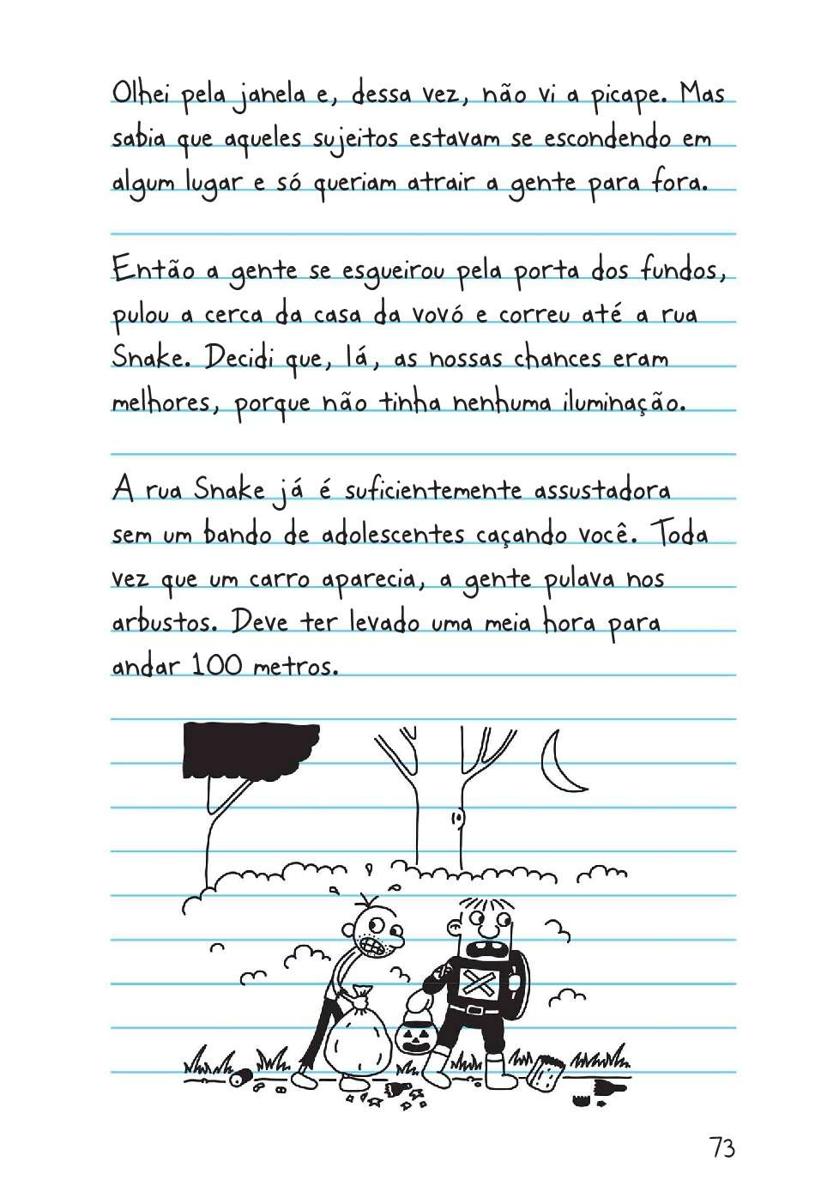 Olhei pela janela e, dessa vez, não vi a picape. Mas
sabia que aqueles sujeitos estavam se escondendo em
algum lugar e só queriam atrair a gente para fora.
Então a gente se esgueirou pela porta dos fundos,
pulou a cerca da casa da vovó e correu até a rua
Snake. Decidi que, lá, as nossas chances eram
melhores, porque não tinha nenhuma iluminação.
A rua Snake já é suficientemente assustadora
sem um bando de adolescentes caçando você. Toda
vez que um carro aparecia, a gente pulava nos
arbustos. Deve ter levado uma meia hora para
andar 100 metros.
73